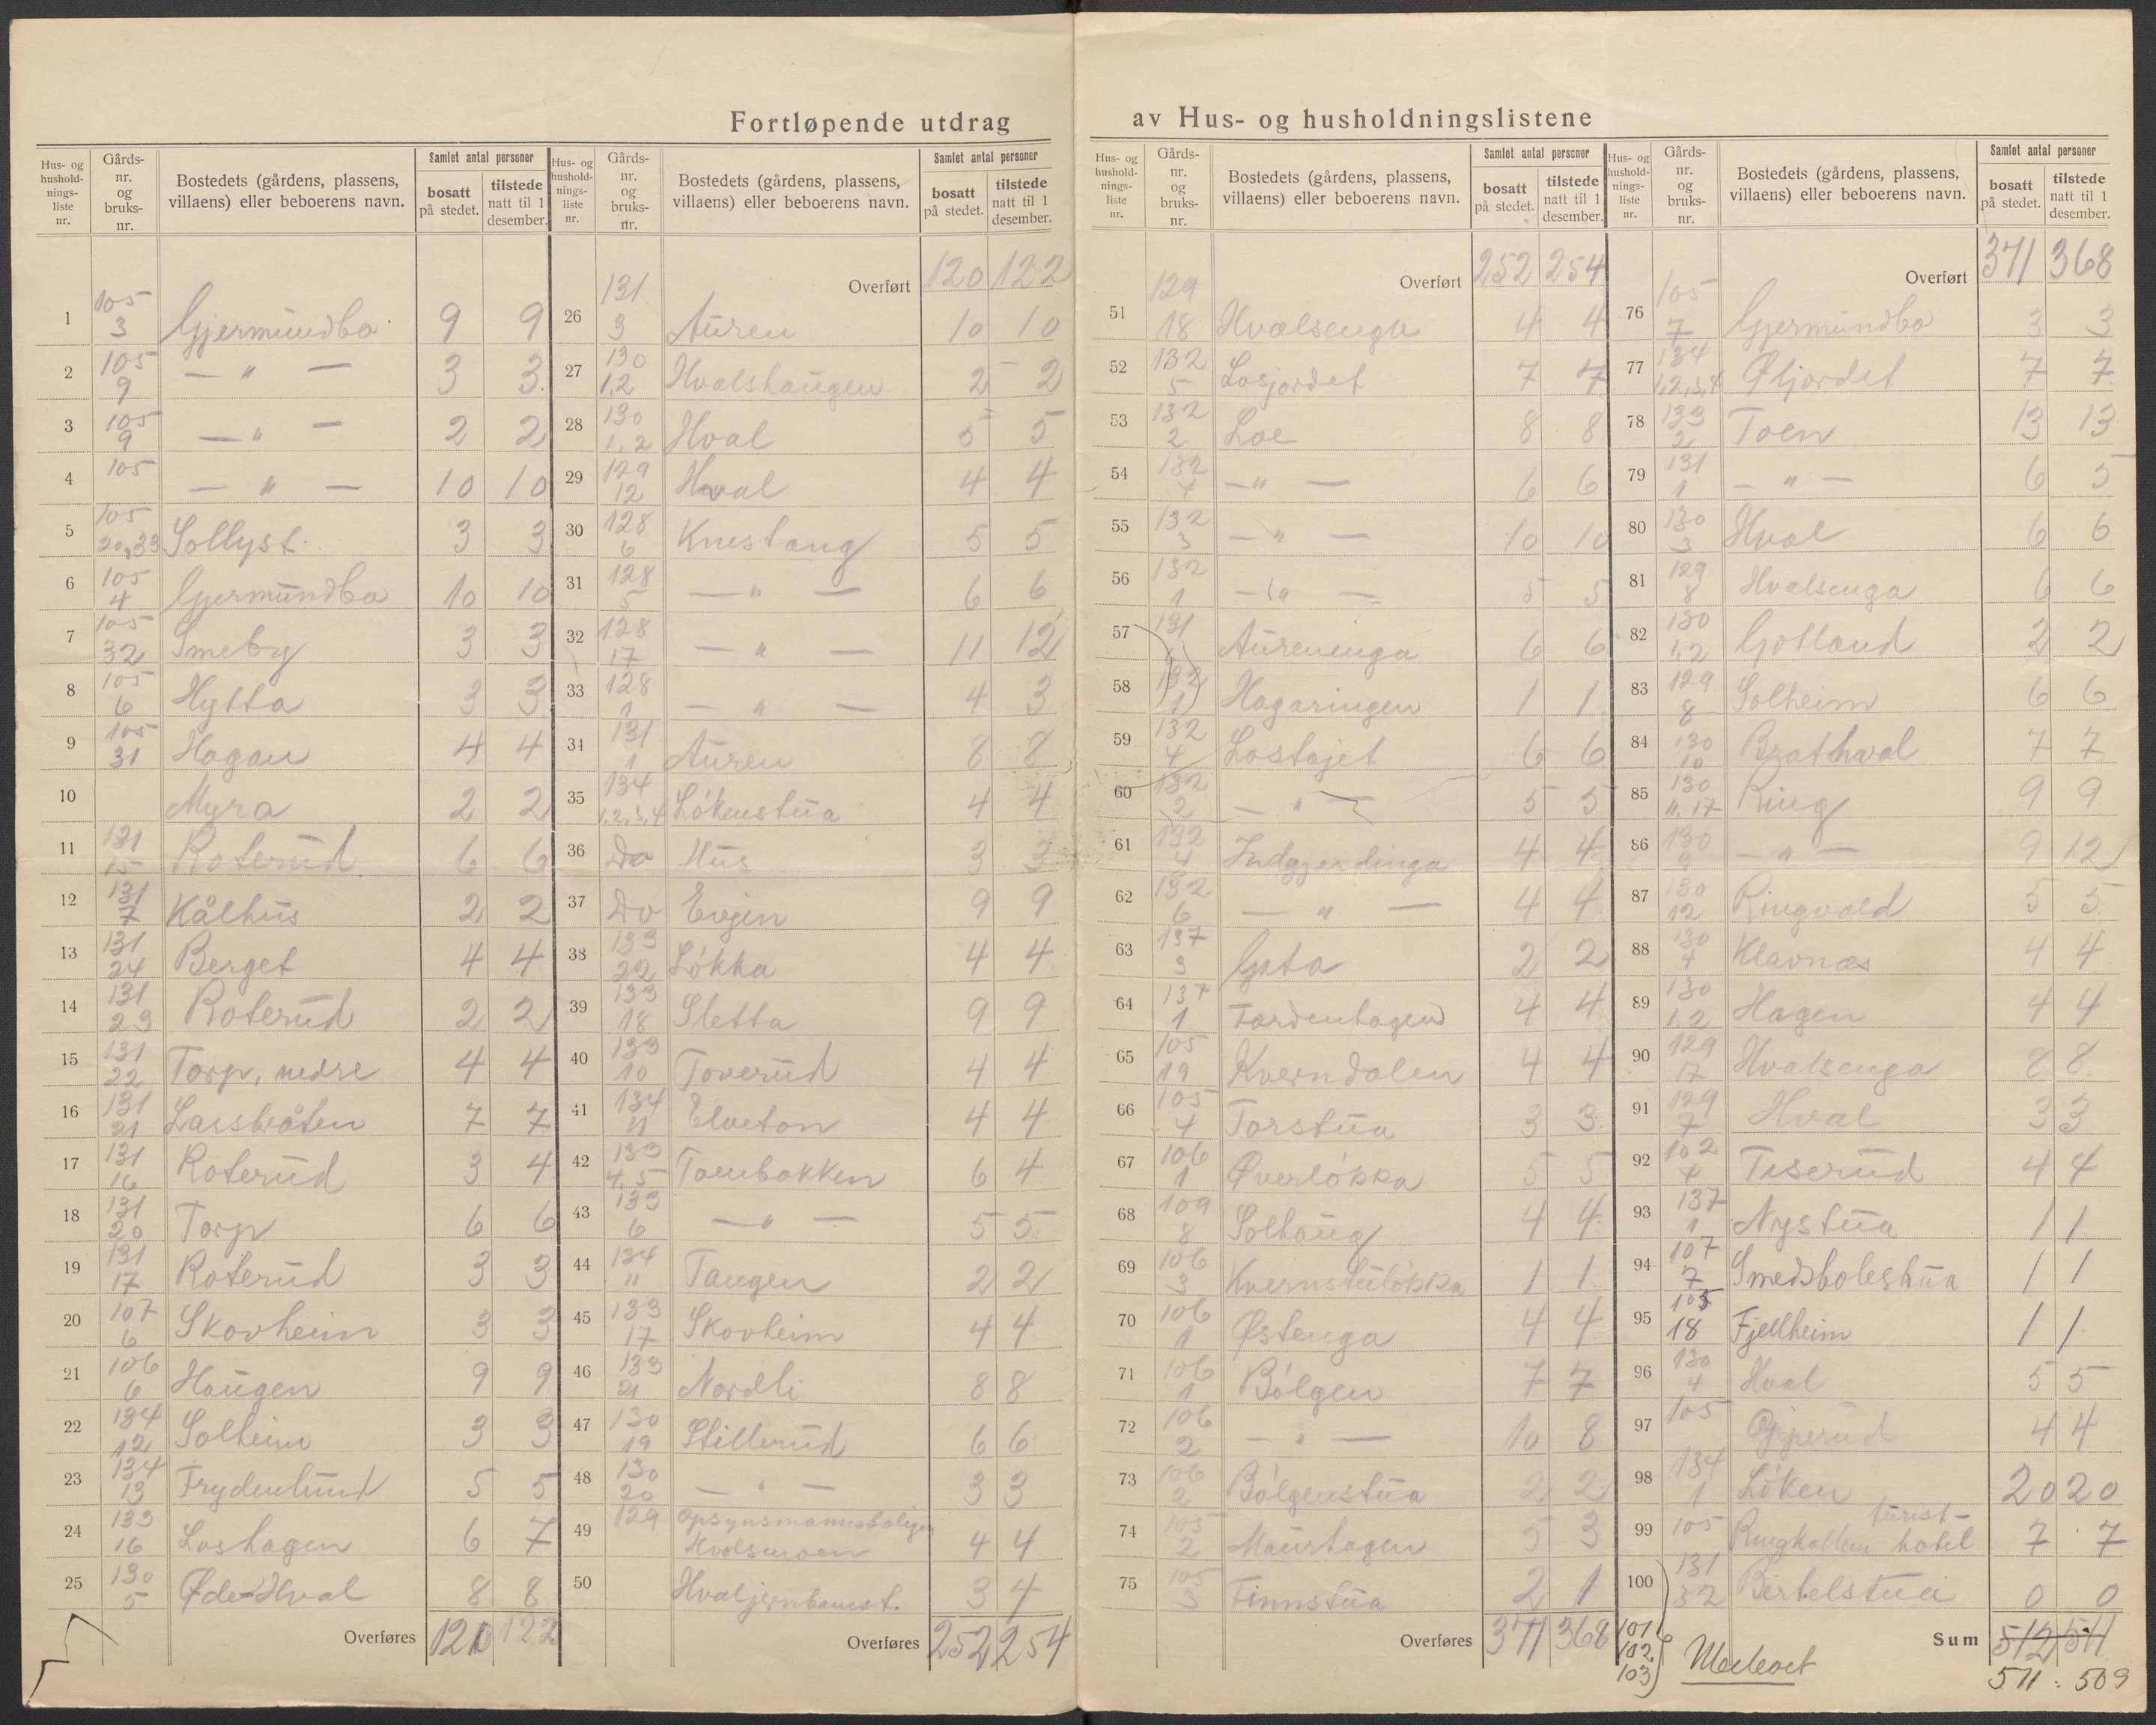 Fortløpende utdrag av Hus- og husholdningslistene
Hus- og husholdningsliste nr. | Gårdsnr. og bruksnr. | Bostedets (gårdens, plassens, villaens) eller beboerens navn. | Samlet antal personer | bosatt på stedet. | tilstede natt til 1 desember.
1 105 3 Gjermundbo 9 9
2 105 9 — " — 3 3
3 105 9 — " — 2 2
4 105 — " — 10 10
5 105 20,33 Sollyst 3 3
6 105 4 Gjermundbo 10 10
7 105 32 Smeby 3 3
8 105 6 Hytta 3 3
9 105 31 Hagan 4 4
10 Myra 2 2
11 131 15 Roterud 6 6
12 131 7 Kålhus 2 2
13 131 24 Berget 4 4
14 131 23 Roterud 2 2
15 131 22 Torp, nedre 4 4
16 131 21 Larsbråten 7 7
17 131 16 Roterud 3 4
18 131 20 Torp 6 6
19 131 17 Roterud 3 3
20 107 6 Skovheim 3 3
21 106 6 Haugen 9 9
22 134 12 Solheim 3 3
23 134 13 Frydenlund 5 5
24 133 16 Loshagen 6 7
25 130 5 Øde-Hval 8 8
Overføres 120 122
Hus- og husholdningsliste nr. | Gårdsnr. og bruksnr. | Bostedets (gårdens, plassens, villaens) eller beboerens navn. | Samlet antal personer | bosatt på stedet. | tilstede natt til 1 desember.
Overført 120 122
26 131 3 Auren 10 10
27 130 1,2 Hvalshaugen 2 2
28 130 1,2 Hval 5 5
29 129 12 Hval 4 4
30 128 6 Knestang 5 5
31 128 5 — " — 6 6
32 128 17 — " — 11 12
33 128 1 — " — 4 3
34 131 1 Auren 8 8
35 134 1,2,3,4 Løkenstua 4 4
36 Do Hus 3 3
37 Do Evjen 9 9
38 133 22 Løkka 4 4
39 133 18 Sletta 9 9
40 133 10 Toverud 4 4
41 134 11 Elveton 4 4
42 133 4,5 Toenbakken 6 4
43 133 6 — " — 5 5
44 134 11 Tangen 2 2
45 133 17 Skovheim 4 4
46 133 21 Nordli 8 8
47 130 19 Stillerud 6 6
48 130 20 — " — 3 3
49 129 Opsynsmannsboligen Hvalsmoen 4 4
50 Hval jernbanest. 3 4
Overføres 252 254
Hus- og husholdningsliste nr. | Gårdsnr. og bruksnr. | Bostedets (gårdens, plassens, villaens) eller beboerens navn. | Samlet antal personer | bosatt på stedet. | tilstede natt til 1 desember.
Overført 252 254
51 129 18 Hvalsenga 4 4
52 132 5 Losjordet 7 7
53 132 2 Loe 8 8
54 132 4 — " — 6 6
55 132 3 — " — 10 10
56 132 1 — " — 5 5
57 131 Aurenenga 6 6
58 132 1 Hagaringen 1 1
59 132 4 Lostøjet 6 6
60 132 2 — " — 5 5
61 132 4 Indgjerdinga 4 4
62 132 6 — " — 4 4
63 137 3 Gata 2 2
64 137 1 Fordenhagen 4 4
65 105 19 Kverndalen 4 4
66 105 4 Torstua 3 3
67 106 1 Øverløkka 5 5
68 109 8 Solhaug 4 4
69 106 3 Kvernstuløkka 1 1
70 106 1 Østenga 4 4
71 106 1 Bølgen 7 7
72 106 2 — " — 10 8
73 106 2 Bølgenstua 2 2
74 105 2 Maurhagen 5 3
75 105 3 Finnstua 2 1
Overføres 371 368
Hus- og husholdningsliste nr. | Gårdsnr. og bruksnr. | Bostedets (gårdens, plassens, villaens) eller beboerens navn. | Samlet antal personer | bosatt på stedet. | tilstede natt til 1 desember.
Overført 371 368
76 105 7 Gjermundbo 3 3
77 134 1,2,3,4 Øljordet 7 7
78 133 2 Toen 13 13
79 131 1 — " — 6 5
80 130 3 Hval 6 6
81 129 8 Hvalsenga 6 6
82 130 1,2 Gotland 2 2
83 129 8 Solheim 6 6
84 130 10 Brathval 7 7
85 130 11,17 Ring 9 9
86 130 9 — " — 9 12
87 130 12 Ringvold 5 5
88 130 4 Klavnæs 4 4
89 130 1,2 Hagen 4 4
90 129 17 Hvalsenga 8 8
91 129 7 Hval 3 3
92 102 4 Tiserud 4 4
93 137 1 Nystua 1 1
94 107 7 Smedsbolestua 1 1
95 105 18 Fjellheim 1 1
96 130 4 Hval 5 5
97 105 Opperud 4 4
98 134 1 Løken 20 20
99 105 Ringkollen turist-hotel 7 7
100 131 32 Bertelstua 0 0
101
102
103
Sum 512 511
511 : 509